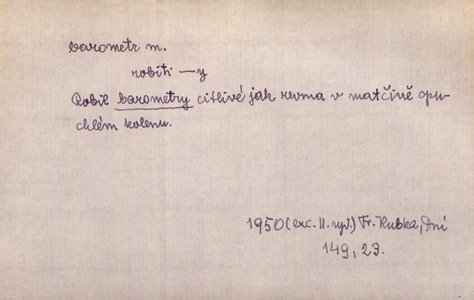 barometr m.
robiti —y
Robil barometry citlivé jak revma v matčině opu-
chlém kolenu.
1950 (exc. II. vyd.) Fr. Kubka, Dni
149, 23.